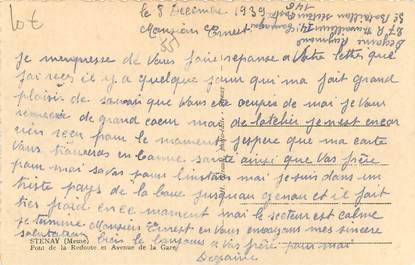 lot
le 8 Decembre 1939
Monsieur Ernest
Je mempresse de Vous faire repanse a Votre lettre que
jai recu il y a quelque jour qui ma fait grand
plaisir de savoir que Vous ete occupés de moi je Vous
remercie de grand cœur mai de latelier je nest encor
rien recu pour le moment jespere que ma carte
Vous trouvera en banne santé ainsi que Vos frère
pour moi sa va pour linstant mai je suis dans un
triste pays de la boue jusquau genou et il fait
tres froid en ce moment mai le secteur est calme
je termine Monsieur Ernest en Vous envoyant mes sincere
salutation bien le bonjour a Vos frère pour moi
STENAY (Meuse)
Pont de la Redoute et Avenue de la Gare